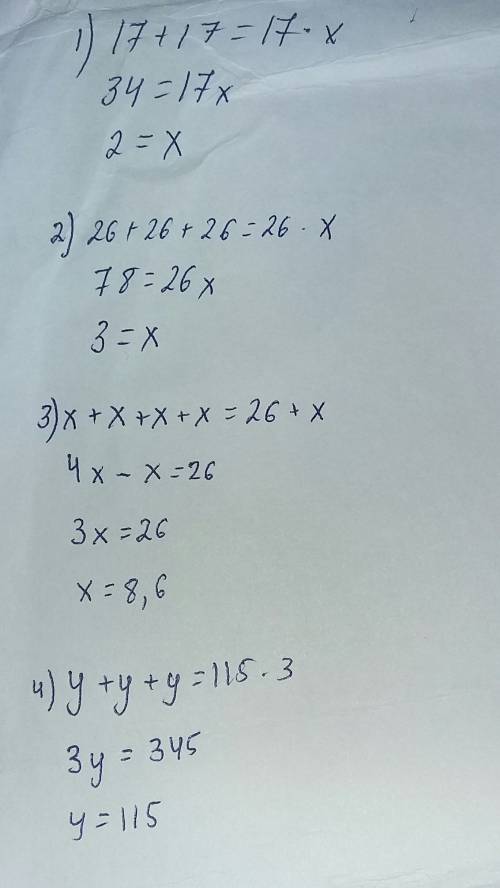 1) 17 + 17 = 17 · x
34 = 17x
2 = x
2) 26 + 26 + 26 = 26 · x
78 = 26x
3 = x
3) x + x + x + x = 26 + x
4x - x = 26
3x = 26
x = 8,6
4) y + y + y = 115 · 3
3y = 345
y = 115